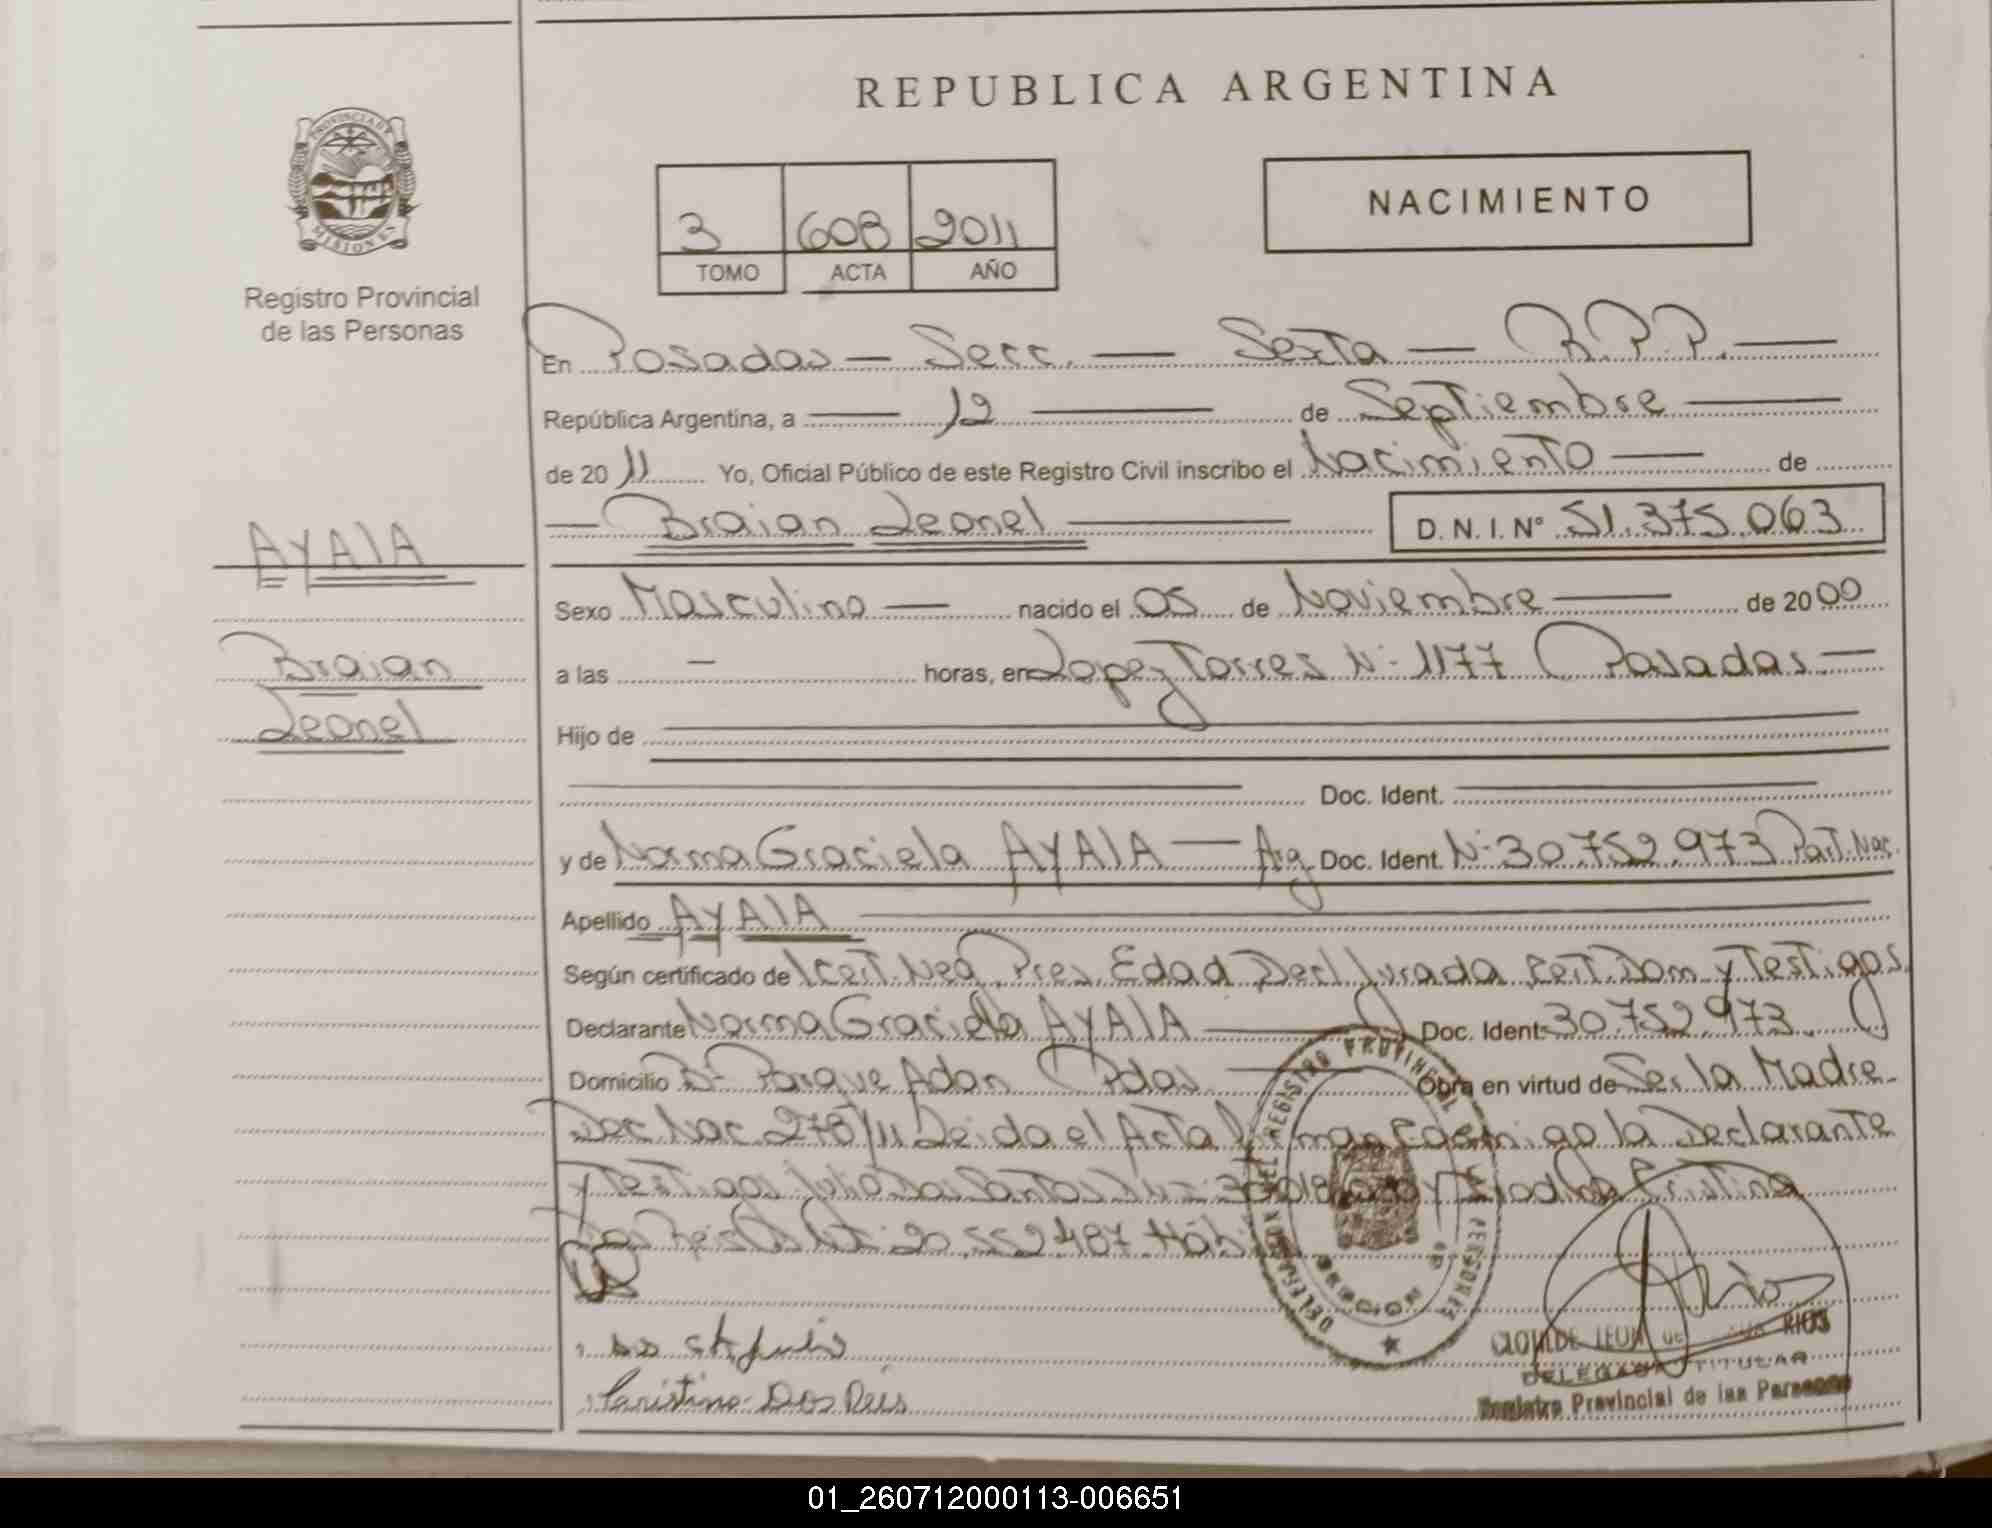 REPUBLICA ARGENTINA
PROVINCIA DE
MISIONES
Registro Provincial
de las Personas
3 608 2011
TOMO ACTA AÑO
NACIMIENTO
En Posadas — Secc. — Sexta — R.P.P. —
República Argentina, a — 12 — de Septiembre —
de 20 11 Yo, Oficial Público de este Registro Civil inscribo el Nacimiento — de
— Braian Leonel — D. N. I. N° 51.375.063
AYALA
Braian
Leonel
Sexo Masculino — nacido el 05 de Noviembre — de 20 00
a las — horas, en Lopez Torres N° 1177 Posadas —
Hijo de
Doc. Ident.
y de Norma Graciela AYALA — Arg. Doc. Ident. N° 30.752.973 Part. Nac.
Apellido AYALA
Según certificado de Cert. Neg. Pres. Edad Decl. Jurada Cert. Dom y Testigos
Declarante Norma Graciela AYALA — Doc. Ident. 30.752.973
Domicilio B° Parque Adan Pdas — Obra en virtud de Ser la Madre
Dec. Nac. 278/11 Leida el Acta la Declarante
y Testigos Cristina
Dos Reis
Cristina Dos Reis
DELEGADA TITULAR
Registro Provincial de las Personas
01_260712000113-006651